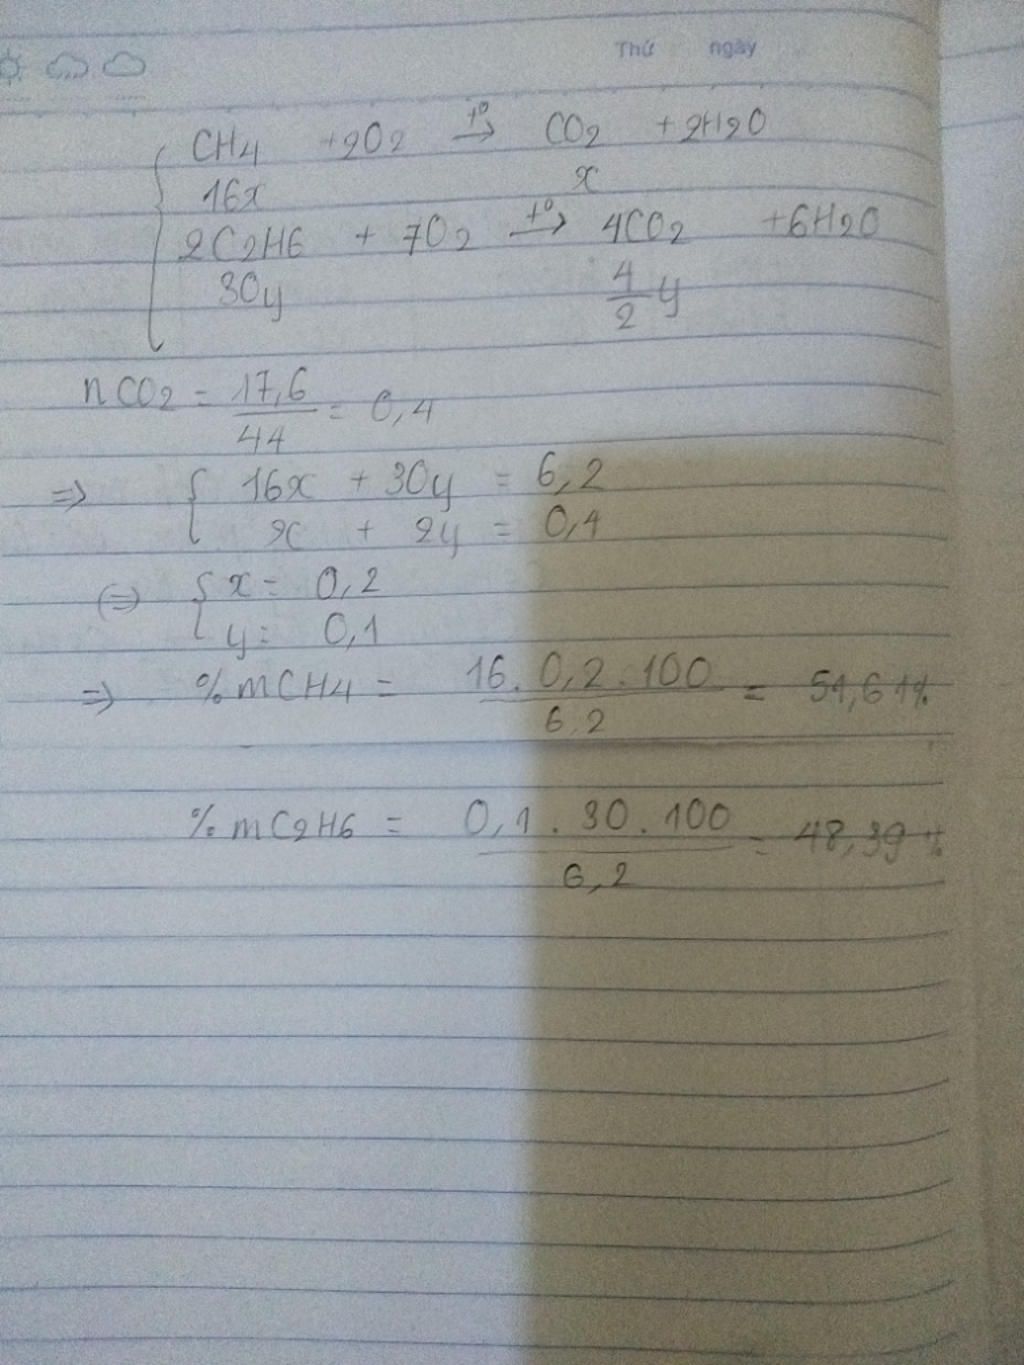 Thứ ngày
CH4 +2O2 t° → CO2 + 2H2O
16x x
2C2H6 + 7O2 t° → 4CO2 +6H2O
30y 4/2 y
nCO2 = 17,6/44 = 0,4
=> { 16x + 30y = 6,2
x + 2y = 0,4
(=) { x = 0,2
y = 0,1
=> % mCH4 = 16.0,2.100/6,2 = 51,61%
% mC2H6 = 0,1.30.100/6,2 = 48,39%